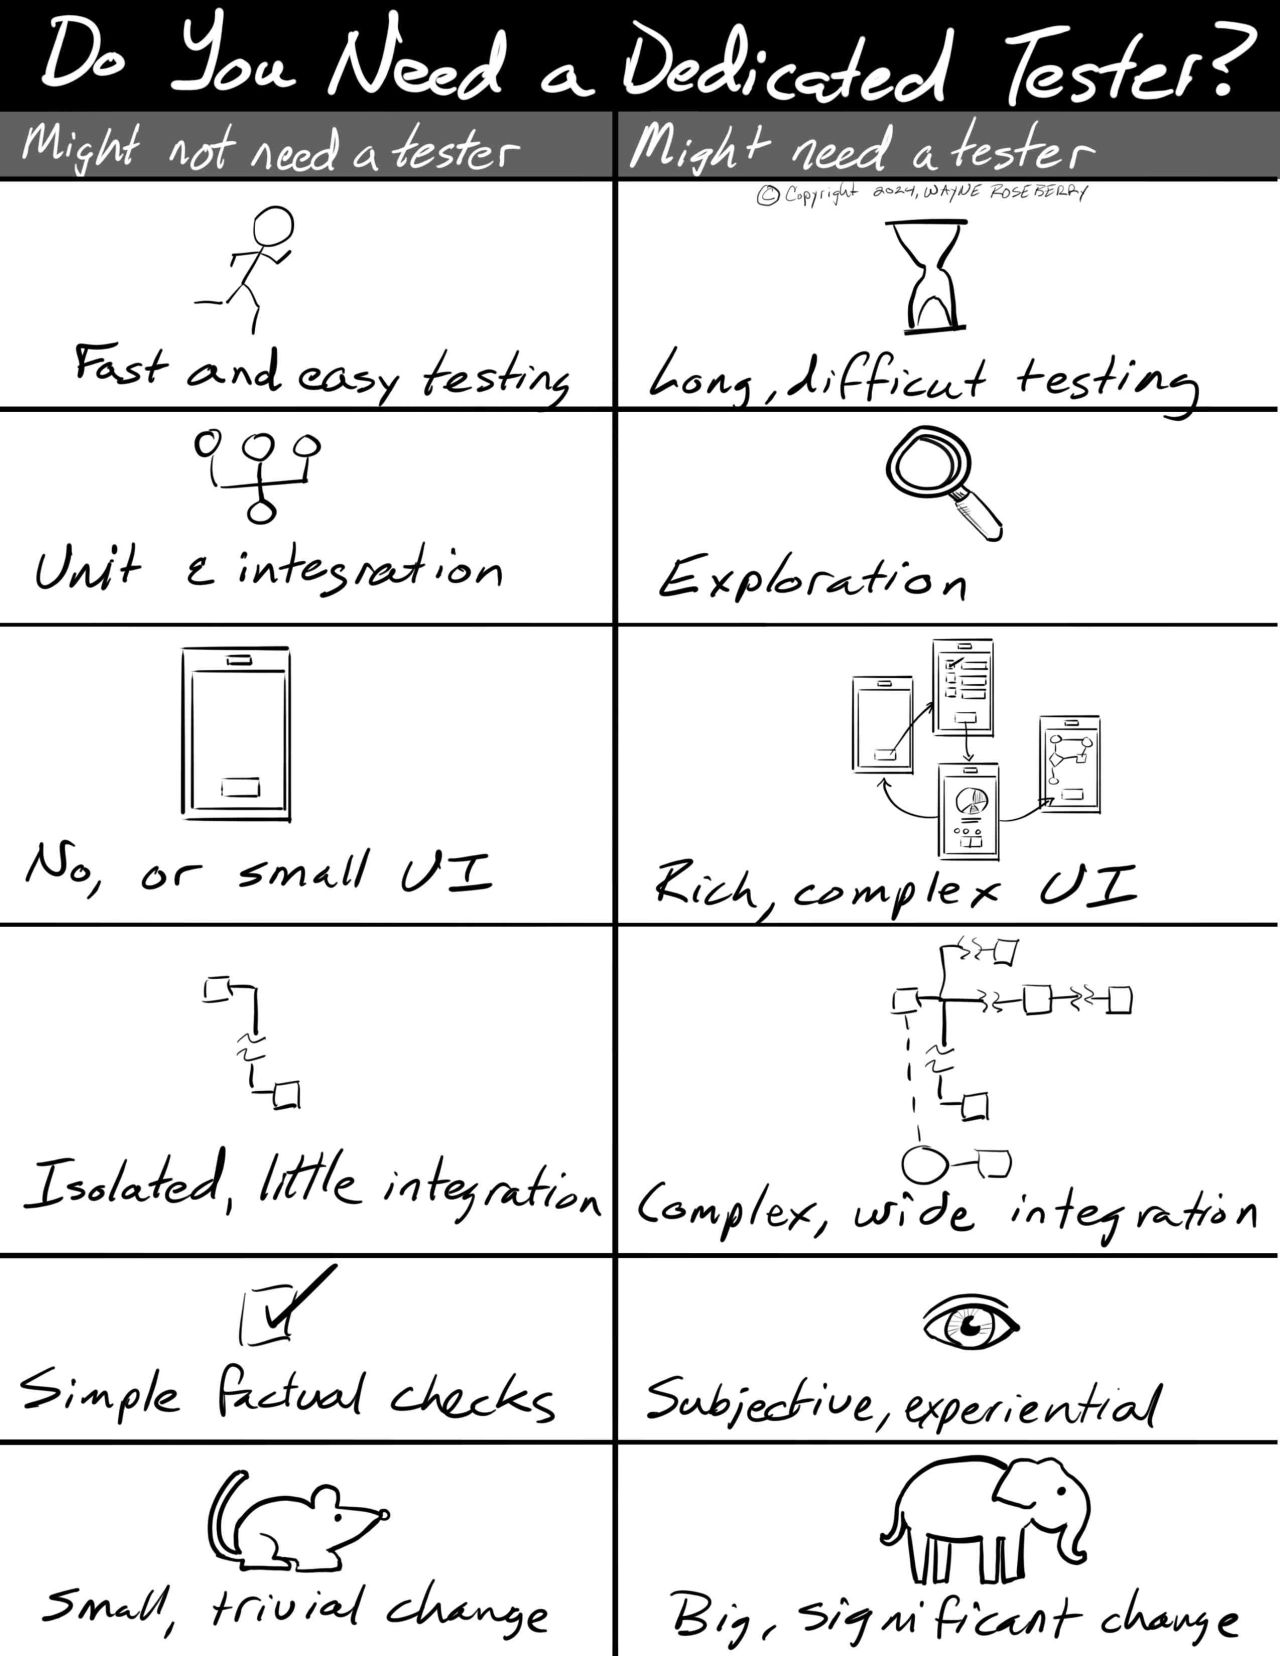 Do You Need a Dedicated Tester?
Might not need a tester
Might need a tester
© Copyright 2024, WAYNE ROSEBERRY
Fast and easy testing
Long, difficut testing
Unit & integration
Exploration
No, or small UI
Rich, complex UI
Isolated, little integration
Complex, wide integration
Simple factual checks
Subjective, experiential
Small, trivial change
Big, significant change